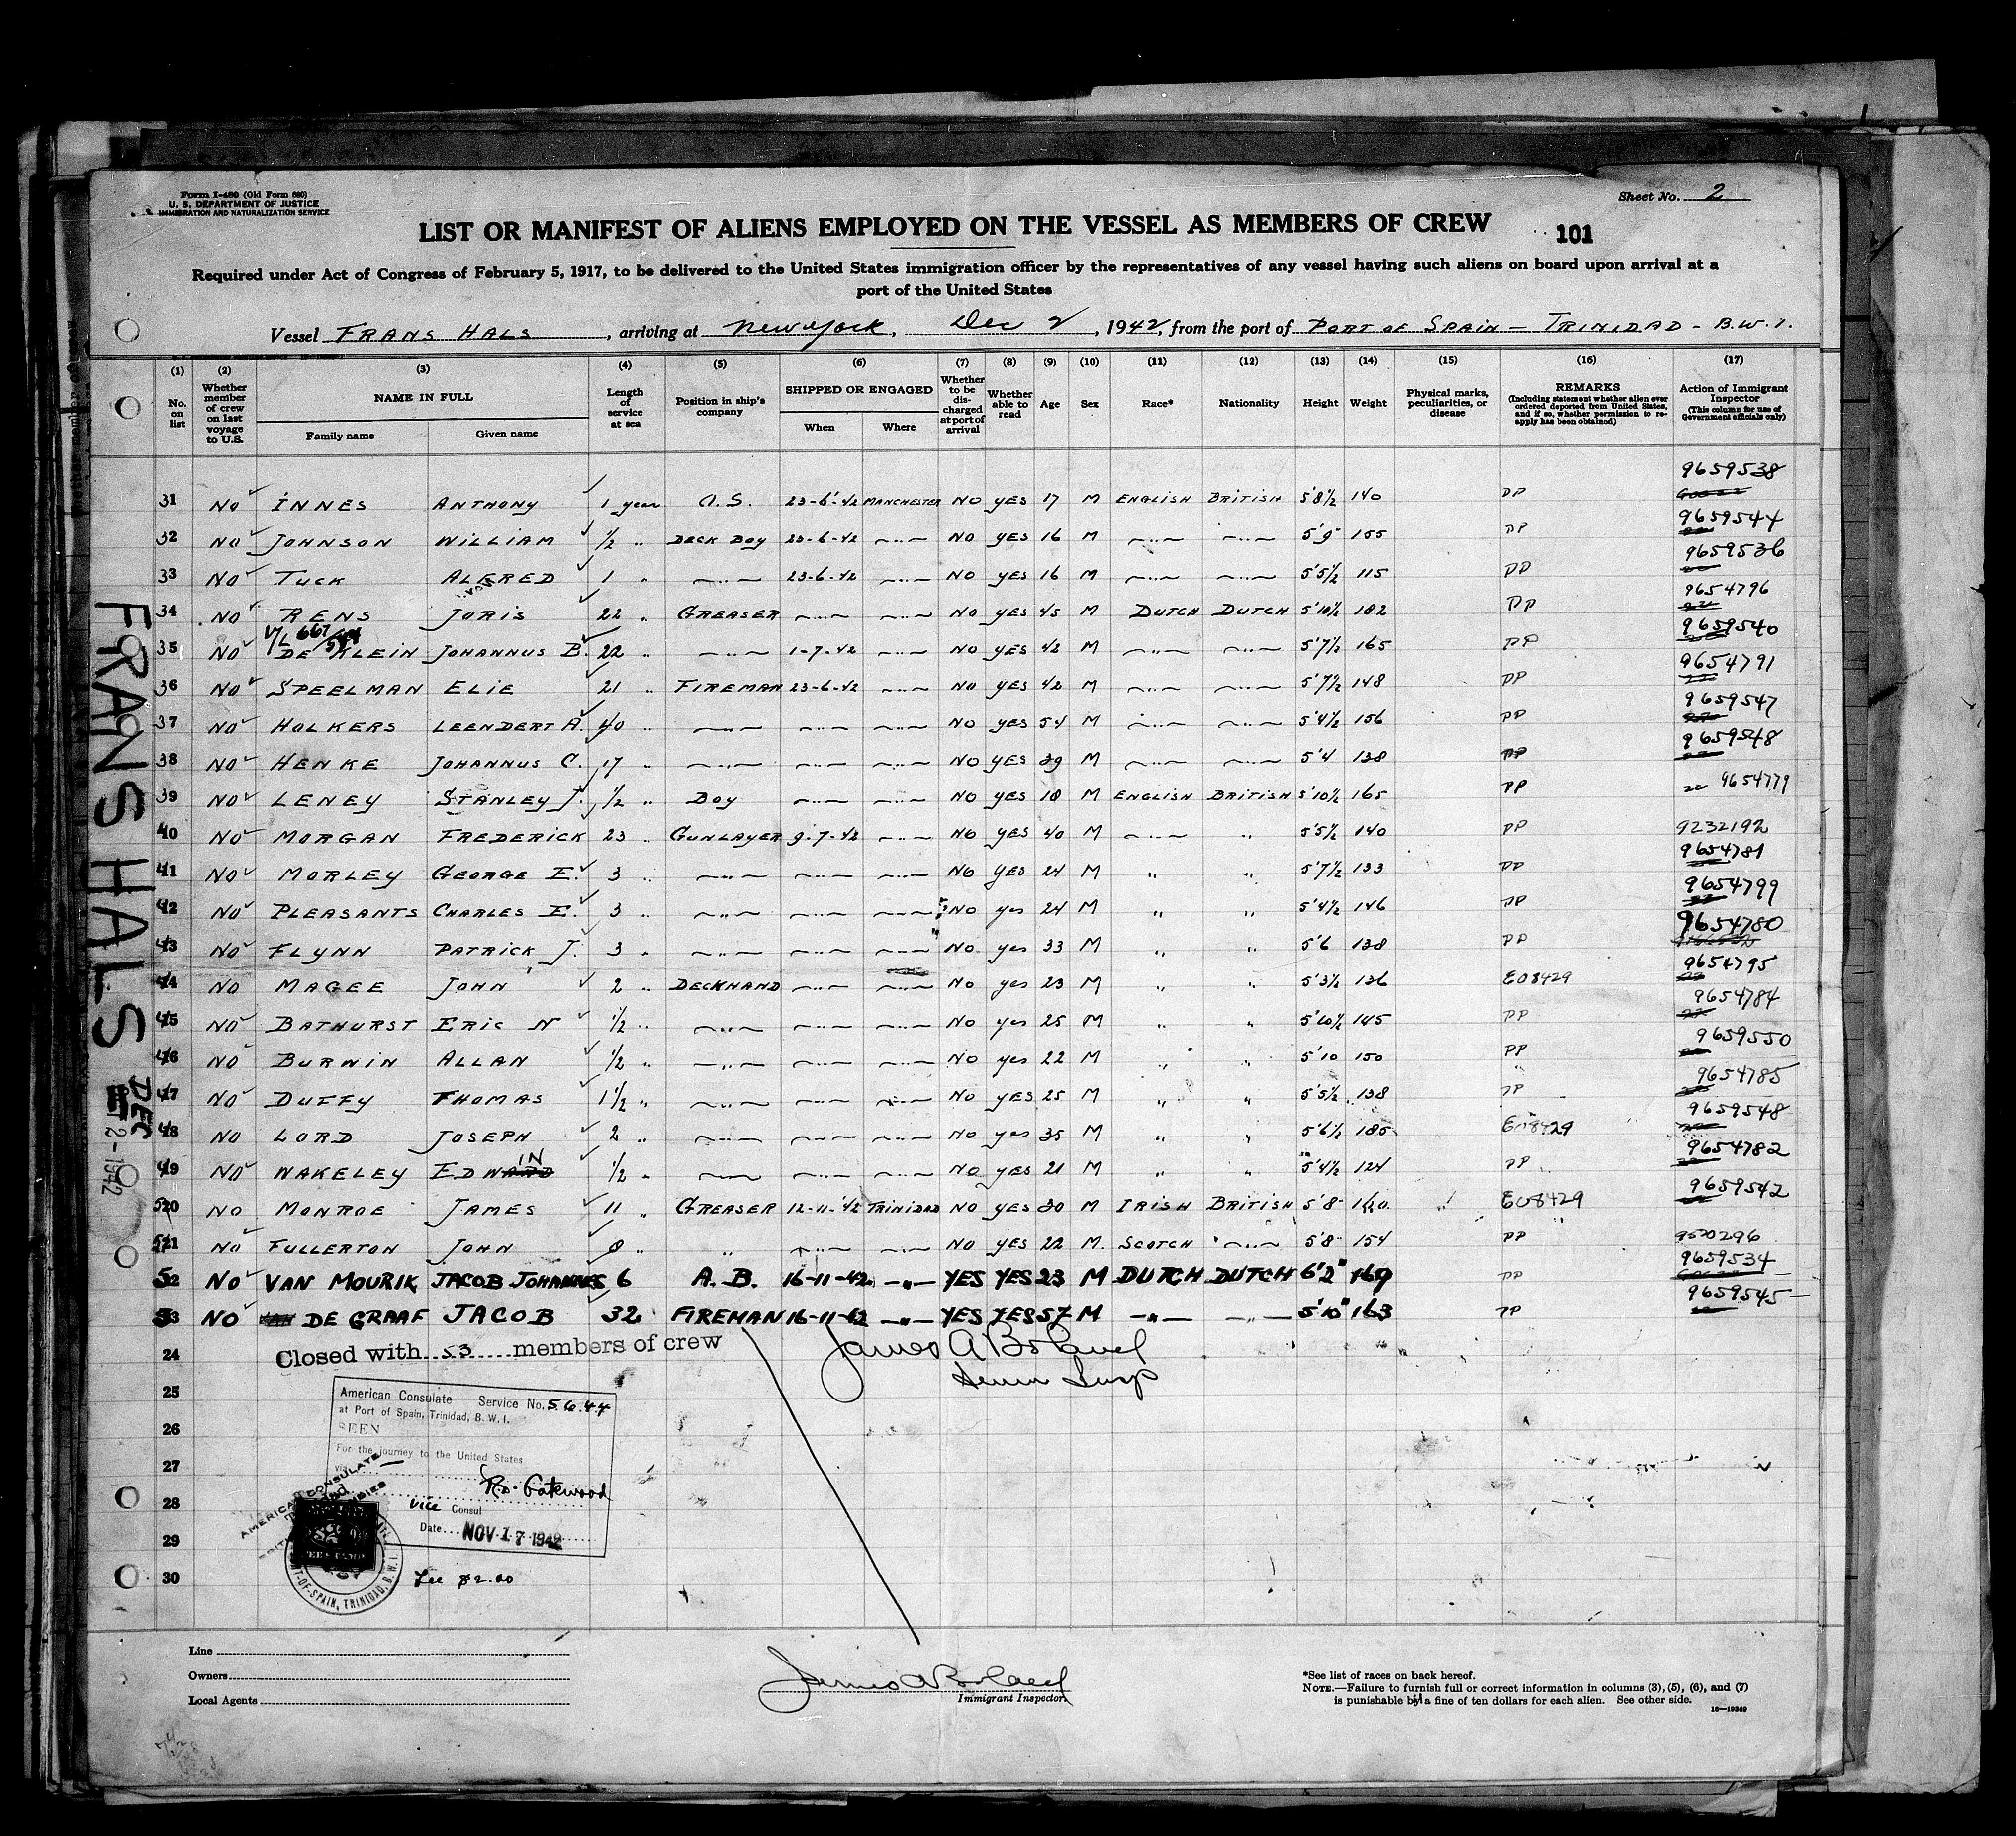 Form I-480 (Old Form 680)
U. S. DEPARTMENT OF JUSTICE
IMMIGRATION AND NATURALIZATION SERVICE
Sheet No. 2
LIST OR MANIFEST OF ALIENS EMPLOYED ON THE VESSEL AS MEMBERS OF CREW
101
Required under Act of Congress of February 5, 1917, to be delivered to the United States immigration officer by the representatives of any vessel having such aliens on board upon arrival at a
port of the United States
Vessel FRANS HALS, arriving at New York, Dec 2, 1942, from the port of PORT OF SPAIN - TRINIDAD - B.W.I.
(1) (2) (3) (4) (5) (6) (7) (8) (9) (10) (11) (12) (13) (14) (15) (16) (17)
No. on list
Whether member of crew on last voyage to U.S.
NAME IN FULL
Family name Given name
Length of service at sea
Position in ship's company
SHIPPED OR ENGAGED
When Where
Whether to be discharged at port of arrival
Whether able to read
Age Sex Race* Nationality Height Weight
Physical marks, peculiarities, or disease
REMARKS
(Including statement whether alien ever ordered deported from United States, and if so, whether permission to reapply has been obtained)
Action of Immigrant Inspector
(This column for use of Government officials only)
31 NO INNES ANTHONY 1 year O.S. 23-6-42 MANCHESTER NO YES 17 M ENGLISH BRITISH 5'8½ 140 PP 9659538
32 NO JOHNSON WILLIAM ½ " DECK BOY 23-6-42 -"- NO YES 16 M -"- -"- 5'9 155 PP 9659544
33 NO TUCK ALFRED 1 " -"- 23-6-42 -"- NO YES 16 M -"- -"- 5'5½ 115 PP 9659536
34 NO RENS JORIS 22 " GREASER -"- -"- NO YES 45 M DUTCH DUTCH 5'10½ 182 PP 9654796
V/L 667/544
35 NO DE KLEIN JOHANNUS B. 22 " -"- 1-7-42 -"- NO YES 42 M -"- -"- 5'7½ 165 PP 9659540
36 NO SPEELMAN ELIE 21 " FIREMAN 23-6-42 -"- NO YES 42 M -"- -"- 5'7½ 148 PP 9654791
37 NO HOLKERS LEENDERT A. 40 " -"- -"- -"- NO YES 54 M -"- -"- 5'4½ 156 PP 9659547
38 NO HENKE JOHANNUS C. 17 " -"- -"- -"- NO YES 39 M -"- -"- 5'4 138 PP 9659548
39 NO LENEY STANLEY J. ½ " BOY -"- -"- NO YES 18 M ENGLISH BRITISH 5'10½ 165 PP 9654779
40 NO MORGAN FREDERICK 23 " GUNLAYER 9-7-42 -"- NO YES 40 M -"- " 5'5½ 140 PP 9232192
41 NO MORLEY GEORGE E. 3 " -"- -"- -"- NO YES 24 M " " 5'7½ 133 PP 9654781
42 NO PLEASANTS CHARLES E. 3 " -"- -"- -"- NO yes 24 M " " 5'4½ 146 PP 9654799
43 NO FLYNN PATRICK J. 3 " -"- -"- -"- NO yes 33 M " " 5'6 138 PP 9654780
44 NO MAGEE JOHN 2 " DECKHAND -"- -"- NO yes 23 M " " 5'3½ 136 E08429 9654795
45 NO BATHURST ERIC N ½ " -"- -"- -"- NO yes 25 M " " 5'10½ 145 PP 9654784
46 NO BURWIN ALLAN ½ " -"- -"- -"- NO yes 22 M " " 5'10 150 PP 9659550
47 NO DUFFY THOMAS 1½ " -"- -"- -"- NO YES 25 M " " 5'5½ 138 PP 9654785
48 NO LORD JOSEPH 2 " -"- -"- -"- NO yes 35 M " " 5'6½ 185 E08429 9659548
49 NO WAKELEY EDWIN ½ " -"- -"- -"- NO YES 21 M " " 5'4½ 124 PP 9654782
50 NO MONROE JAMES 11 " GREASER 12-11-42 TRINIDAD NO YES 30 M IRISH BRITISH 5'8 E08429 9659542
51 NO FULLERTON JOHN " -"- -"- NO YES 22 M. SCOTCH -"- 5'8 154 PP 9520296
52 NO VAN MOURIK JACOB JOHANNES 6 A.B. 16-11-42 -"- YES YES 23 M DUTCH DUTCH 6'2" 169 PP 9659534
53 NO DE GRAAF JACOB 32 FIREMAN 16-11-42 -"- YES YES 57 M -"- -"- 5'10" 163 PP 9659545
24 Closed with 53 members of crew James A Boland
25
26
27
28
29
30
American Consulate Service No. 5644
at Port of Spain, Trinidad, B. W. I.
SEEN
For the journey to the United States
via
R.D. Gatewood
Vice Consul
Date NOV 17 1942
AMERICAN CONSULATE
PORT-OF-SPAIN, TRINIDAD, B.W.I.
Fee $2.00
FRANS HALS DEC 2-1942
Line
Owners
Local Agents
James A Boland
Immigrant Inspector.
*See list of races on back hereof.
NOTE.—Failure to furnish full or correct information in columns (3), (5), (6), and (7)
is punishable by a fine of ten dollars for each alien. See other side.
16—19349